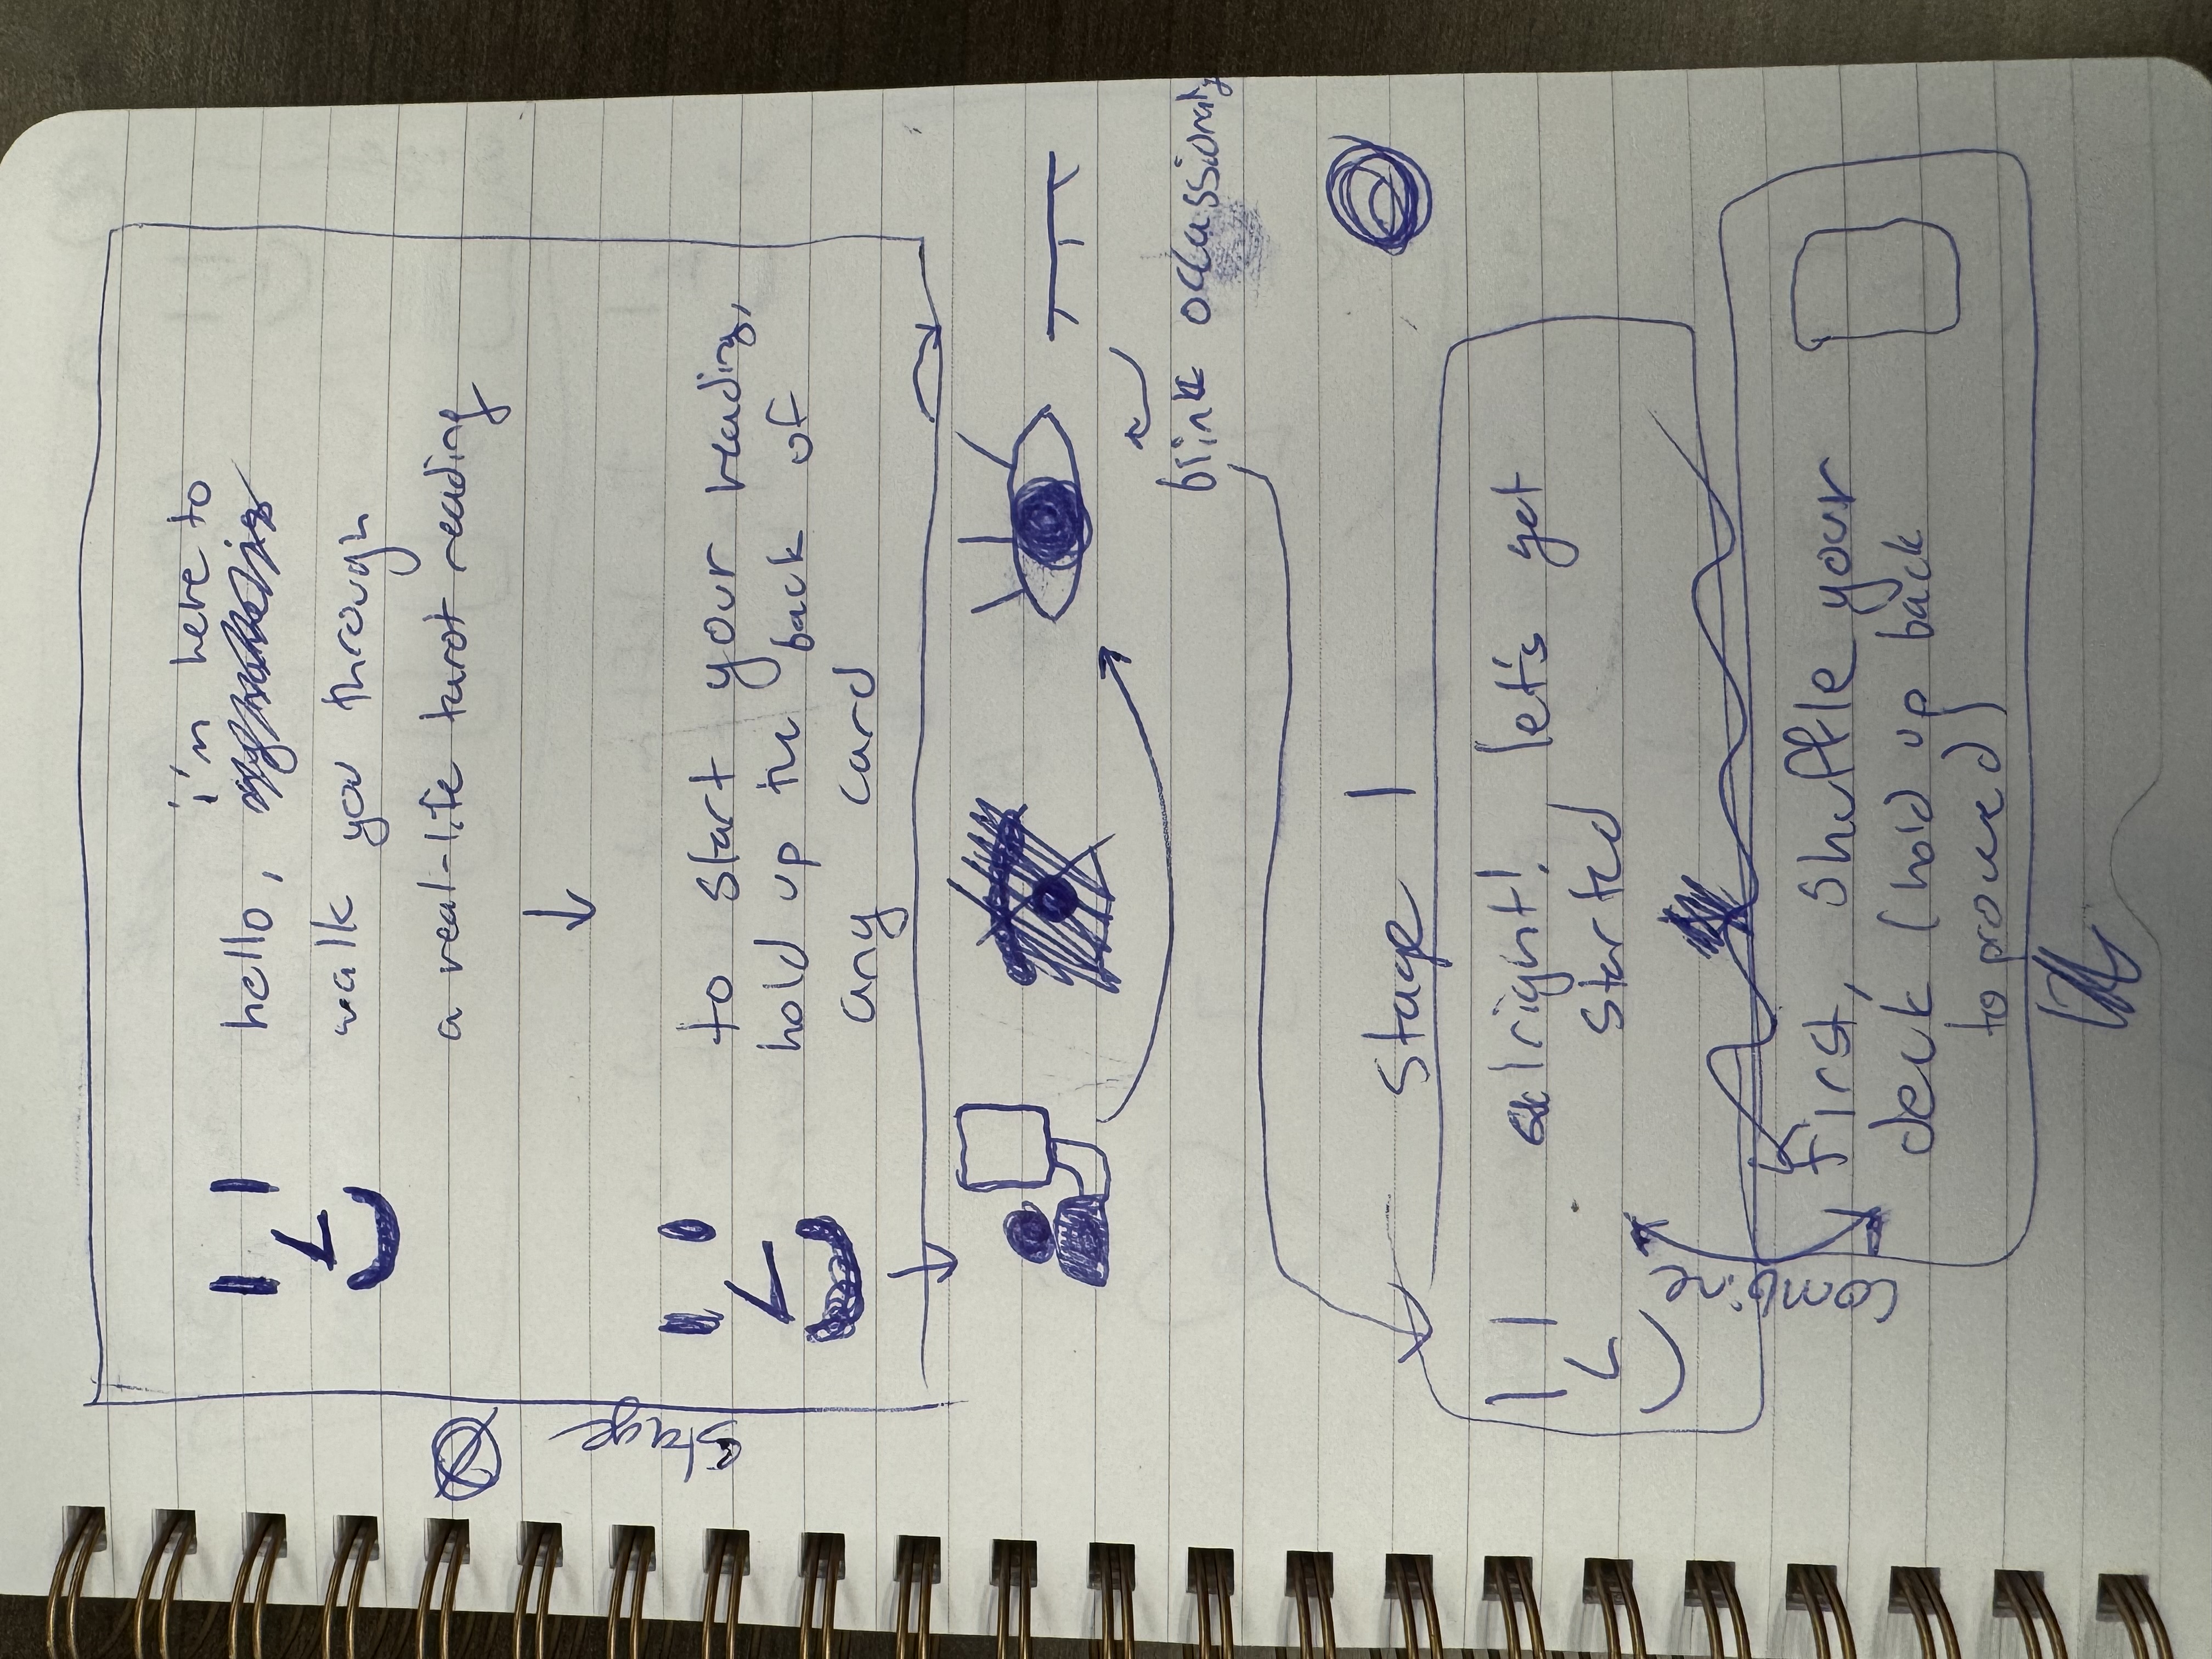 i'm here to
hello,
walk you through
a real-life tarot reading
Stage 0
to start your reading,
hold up the back of
any card
blink occassionaly
Stage 1
alright! let's get
started
combine
First, shuffle your
deck (hold up back
to proceed)